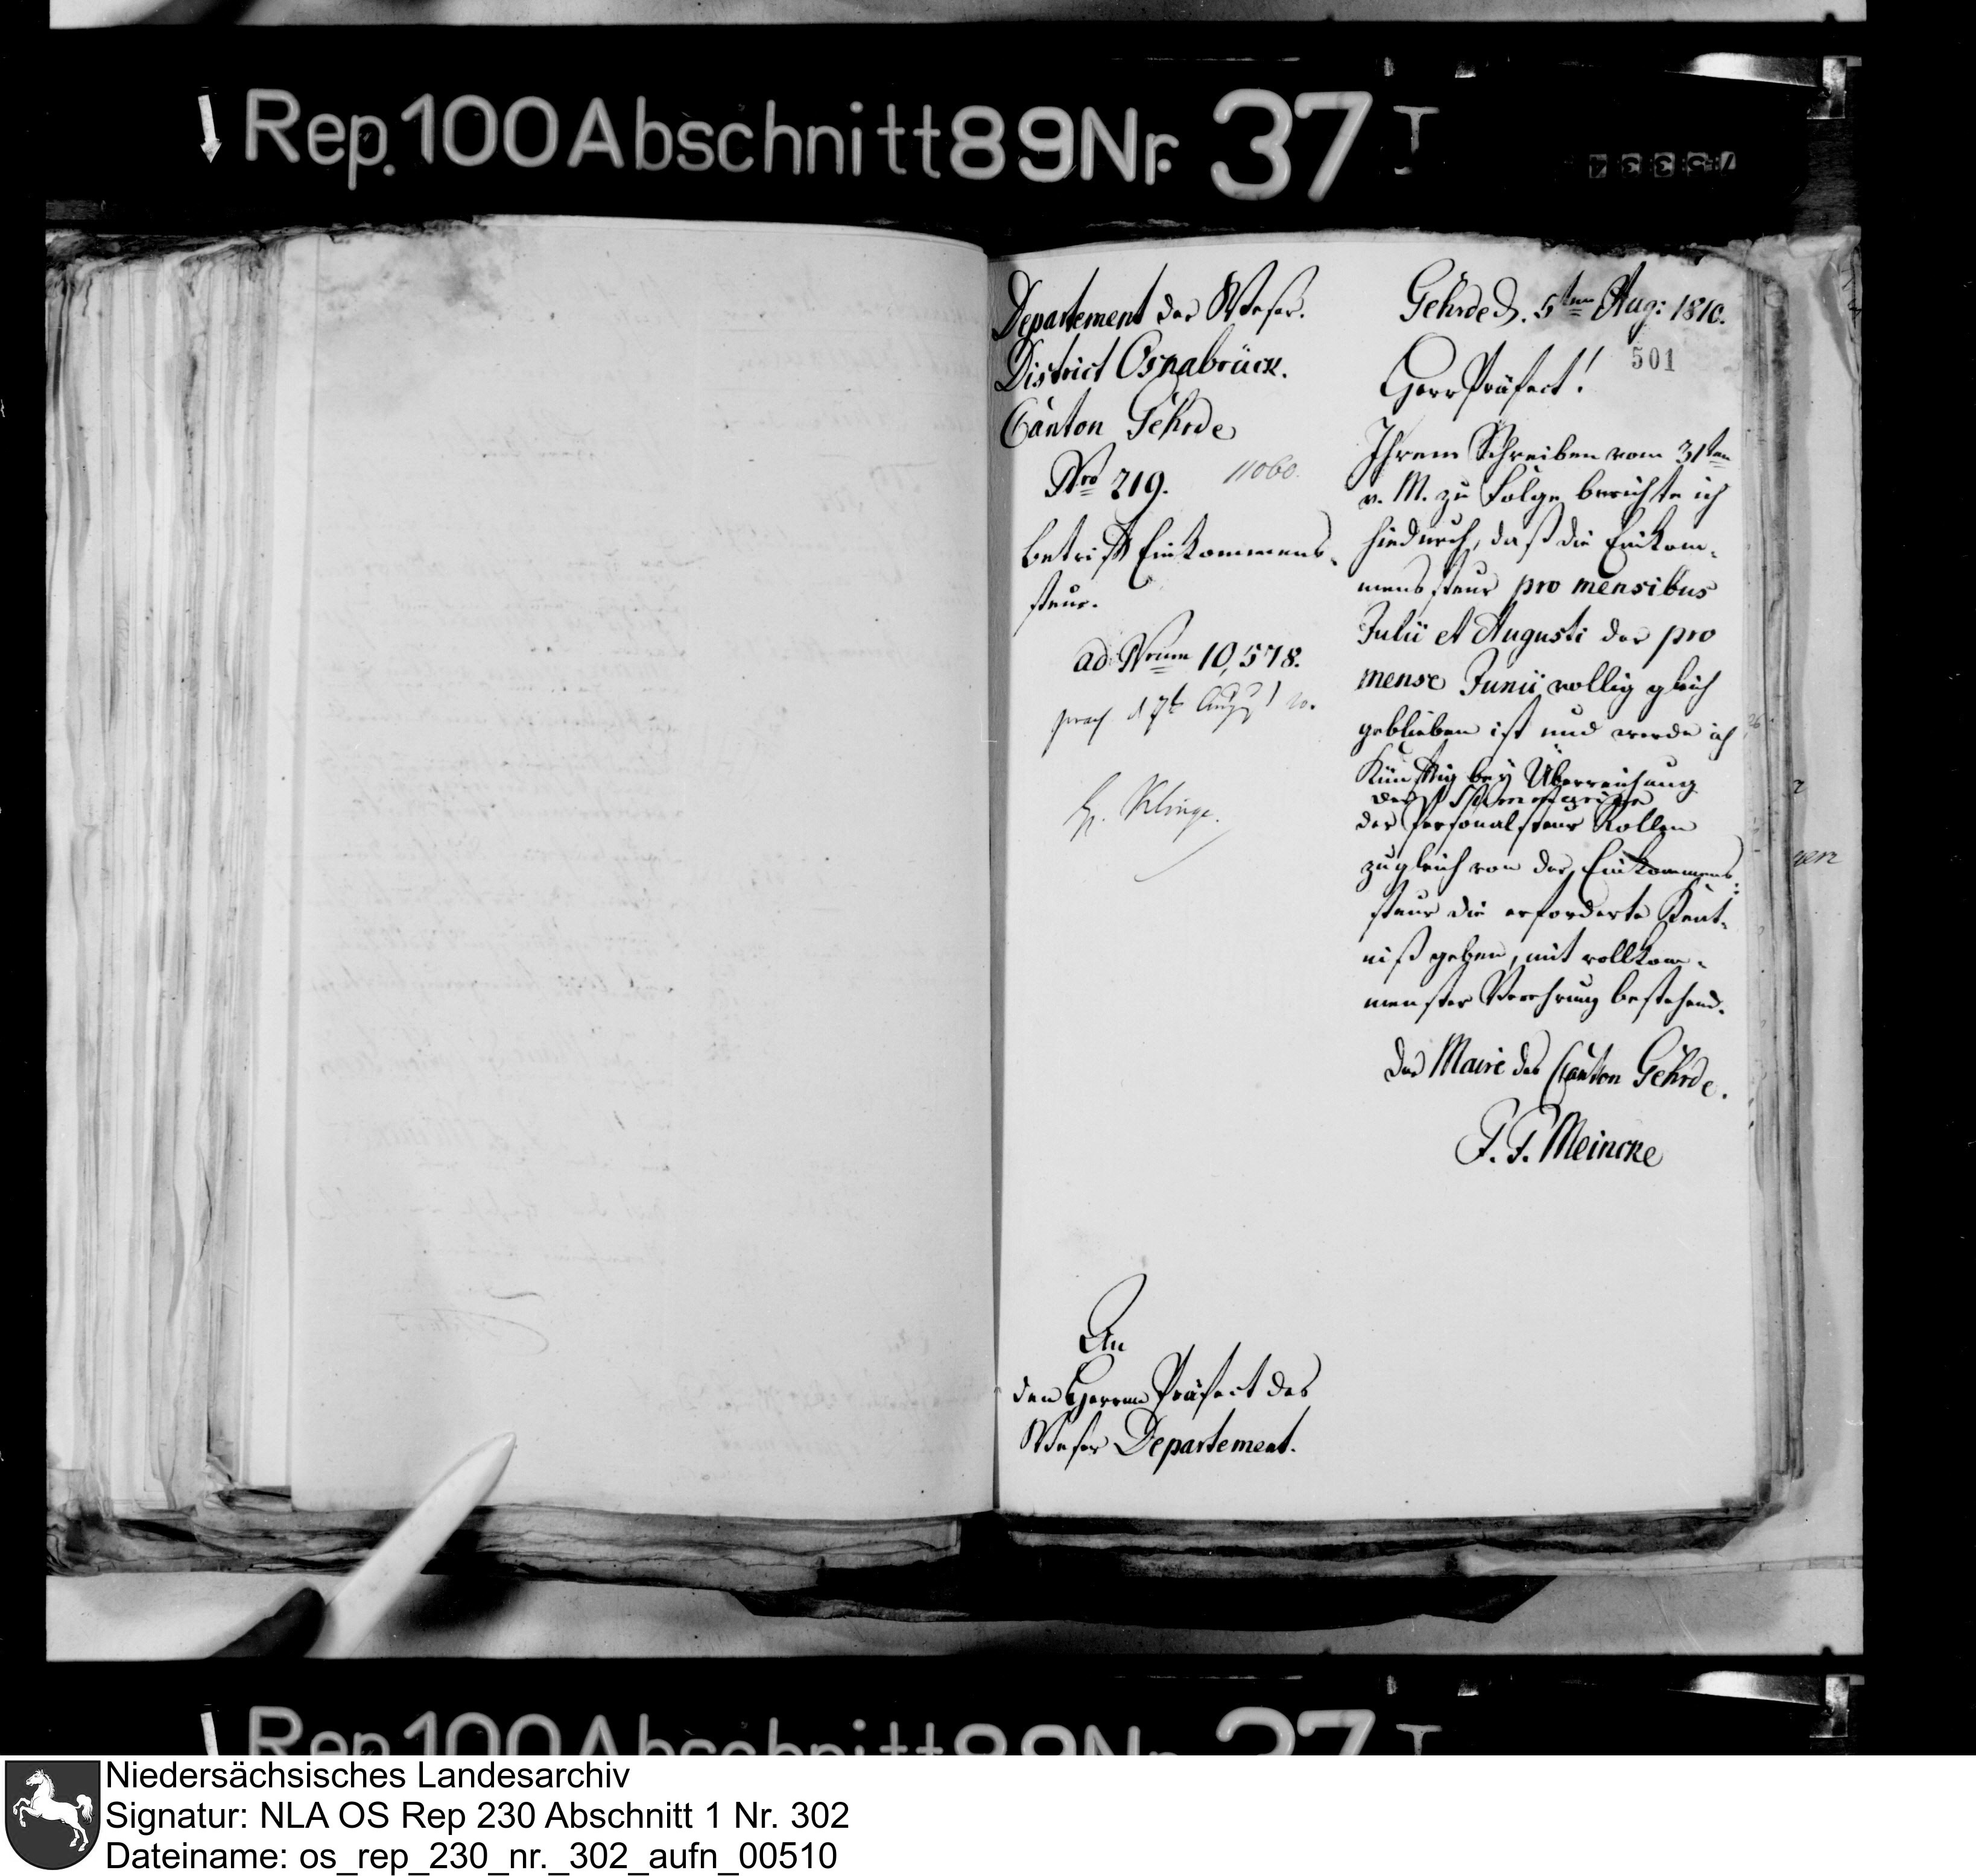 Rep. 100 Abschnitt 89 Nr. 37 I
Departement der Weser.
District Osnabrück.
Canton Gehrde
Nro 219. 11060.
betrifft Einkommens-
steur.
ad Nrum 10,578.
praes d 7t August 10.
H. Klinge.
An
den Herrn Präfect des
Weser Departement.
Gehrde d. 5ten Aug: 1810.
501
Herr Präfect!
Ihrem Schreiben vom 31ten
v. M. zu Folge berichte ich
hiedurch, daß die Einkom-
mens steur pro mensibus
Julii et Augusti der pro
mense Junii vollig gleich
geblieben ist und werde ich
Künfftig bey Überreichung
der Personalsteur Rollen
zugleich von der Einkommens-
steur die erforderte Kent-
niß geben, mit vollkom-
menster Verehrung bestehend.
Der Maire des Canton Gehrde.
F. F. Meincke
Rep. 100 Abschnitt 89 Nr. 37 I
Niedersächsisches Landesarchiv
Signatur: NLA OS Rep 230 Abschnitt 1 Nr. 302
Dateiname: os_rep_230_nr._302_aufn_00510